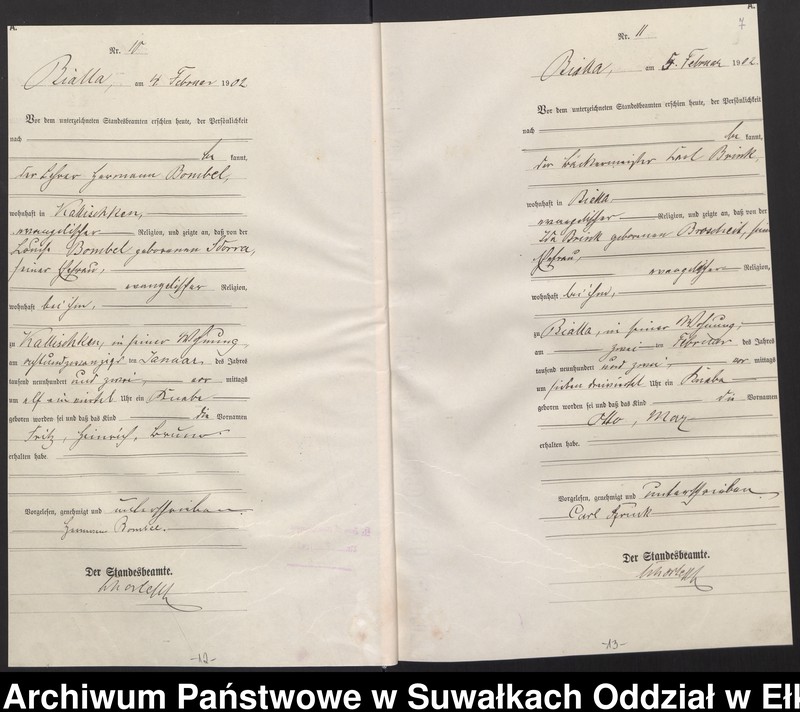 A.
Nr. 10
Bialla, am 4 Februar 1902
Vor dem unterzeichneten Standesbeamten erschien heute, der Persönlichkeit
nach
be kannt,
der Lehrer Hermann Bombel,
wohnhaft in Kallischken,
evangelischer Religion, und zeigte an, daß von der
Louise Bombel geborenen Sdorra,
seiner Ehefrau,
evangelischer Religion,
wohnhaft bei ihm,
zu Kallischken, in seiner Wohnung
am achtundzwanzigs ten Januar des Jahres
tausend neunhundert und zwei, vor mittags
um elf ein viertel Uhr ein Knabe
geboren worden sei und daß das Kind die Vornamen
Fritz, Heinrich, Bruno
erhalten habe.
Vorgelesen, genehmigt und unterschrieben.
Hermann Bombel.
Der Standesbeamte.
-12-
A.
7
Nr. 11
Bialla, am 5. Februar 1902.
Vor dem unterzeichneten Standesbeamten erschien heute, der Persönlichkeit
nach
be kannt,
der Bäckermeister Carl Brink,
wohnhaft in Bialla
evangelischer Religion, und zeigte an, daß von der
Ida Brink geborenen Broscheit, seiner
Ehefrau,
evangelischer Religion,
wohnhaft bei ihm,
zu Bialla, in seiner Wohnung,
am zwei ten Februar des Jahres
tausend neunhundert und zwei, vor mittags
um sieben dreiviertel Uhr ein Knabe
geboren worden sei und daß das Kind die Vornamen
Otto, Max
erhalten habe.
Vorgelesen, genehmigt und unterschrieben.
Carl Brink
Der Standesbeamte.
-13-
Archiwum Państwowe w Suwałkach Oddział w Ełk